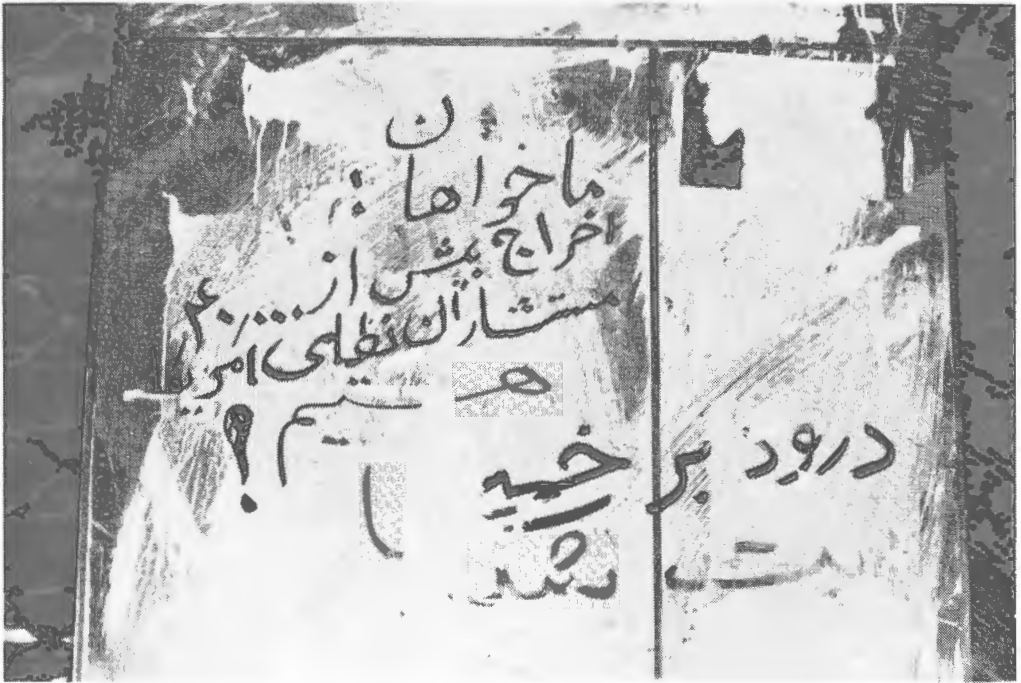 ما خواهان
اخراج بیش از ۴۰۰۰۰
مستشاران نظامی امریکا
هستیم ؟
درود بر خمینی